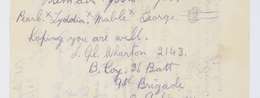 Pearl, Lyddia, Mable, George.
Hoping you are well.
J. Gl. Wharton 2143.
B. Coy. 36 Batt
9th Brigade